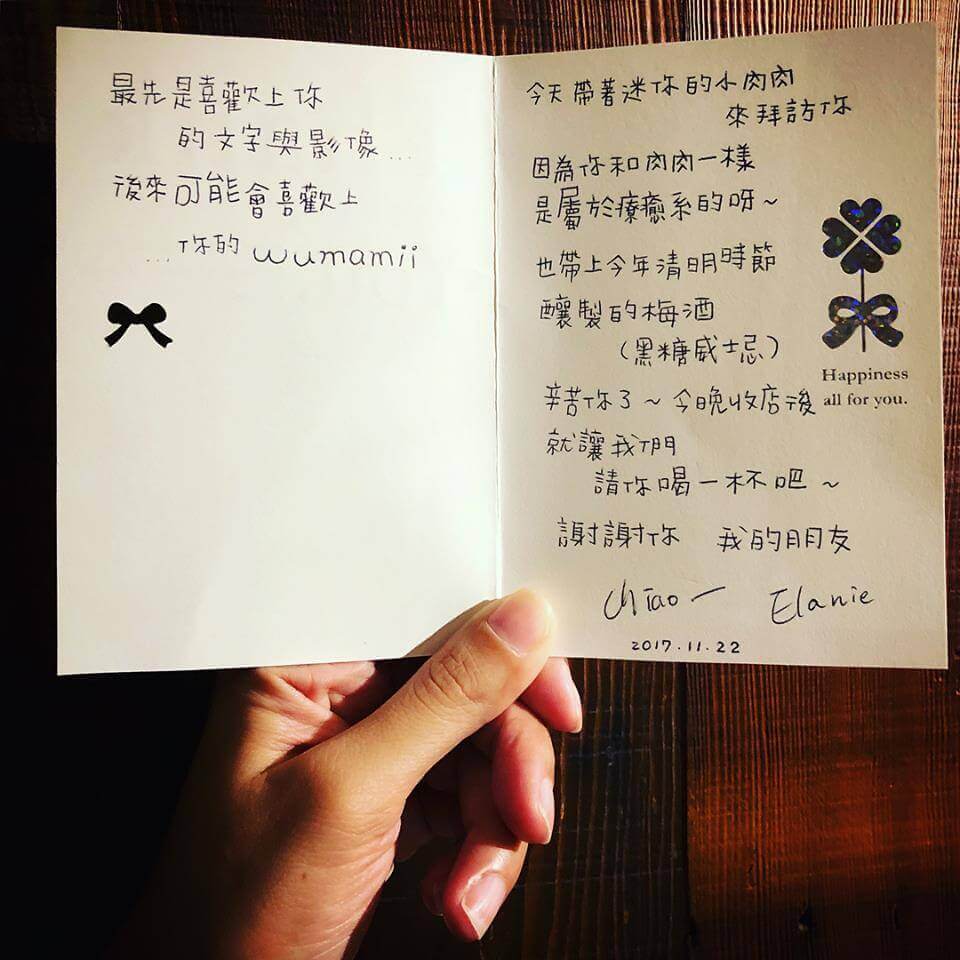 最先是喜歡上你
的文字與影像...
後來可能會喜歡上
...你的 wumamii
今天帶著迷你的小肉肉
來拜訪你
因為你和肉肉一樣
是屬於療癒系的呀~
也帶上今年清明時節
釀製的梅酒
(黑糖威士忌)
辛苦你了~今晚收店後
就讓我們
請你喝一杯吧~
謝謝你 我的朋友
Chiao Elanie
2017.11.22
Happiness
all for you.